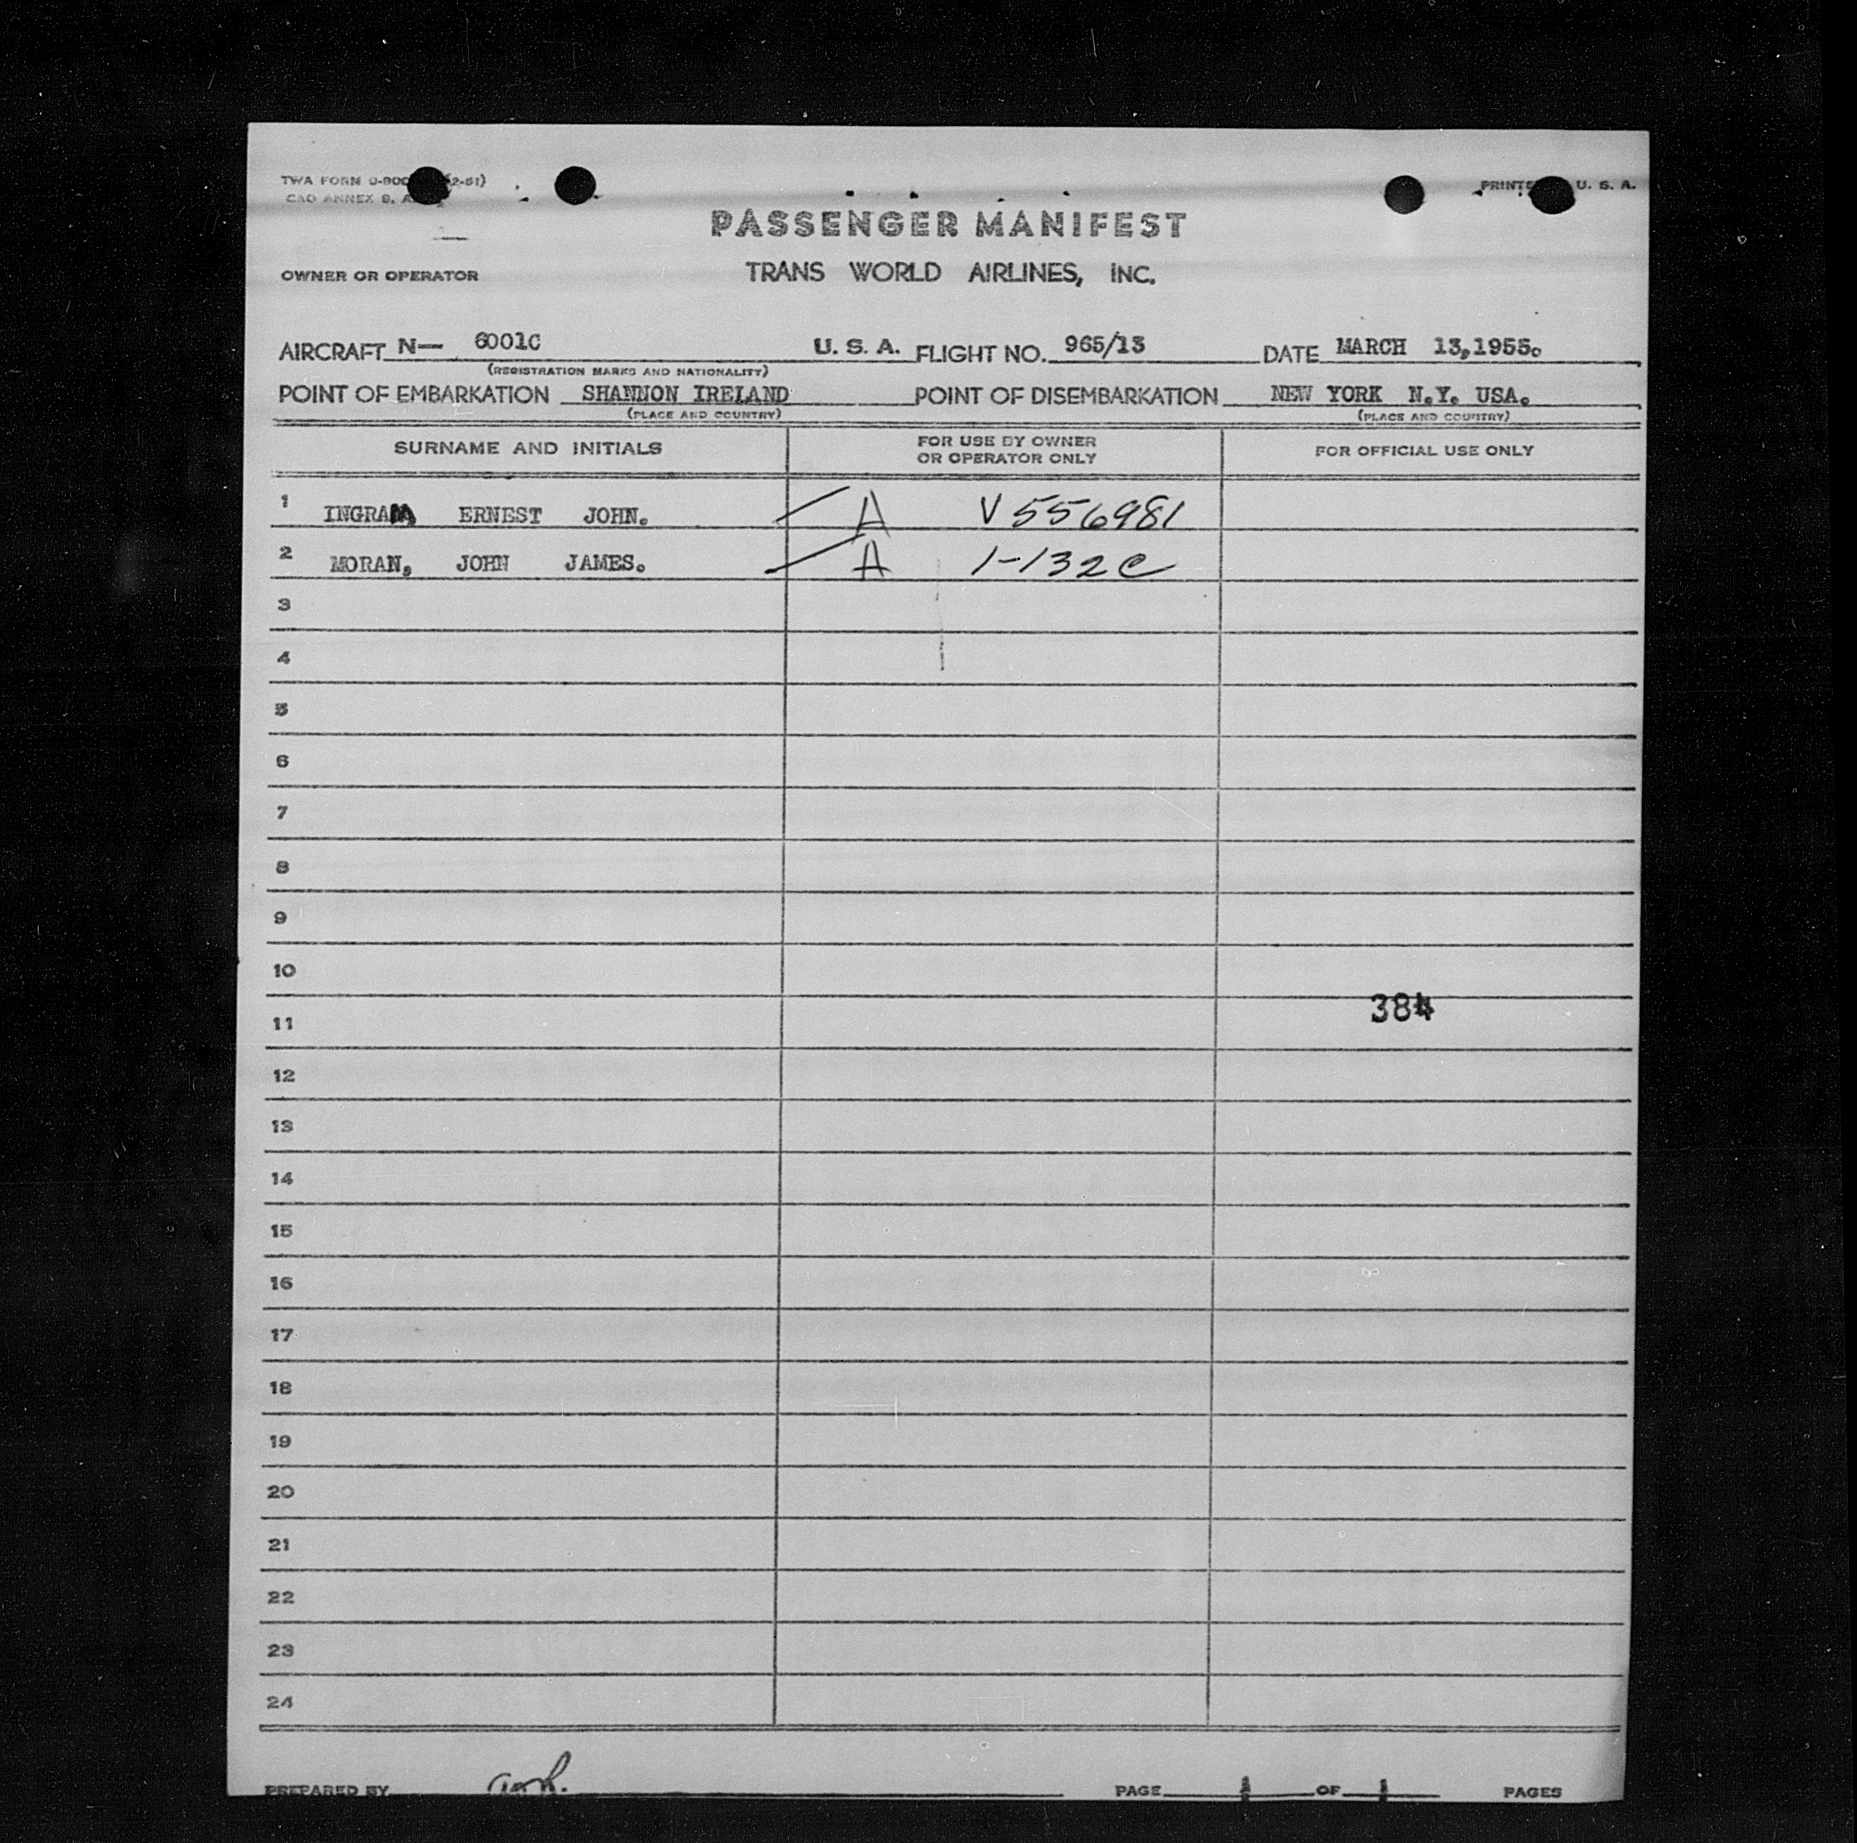 TWA FORM O-800 (2-51) PRINTE U. S. A.
CAO ANNEX 9, A
PASSENGER MANIFEST
OWNER OR OPERATOR TRANS WORLD AIRLINES, INC.
AIRCRAFT N— 6001C U. S. A. FLIGHT NO. 965/13 DATE MARCH 13,1955.
(REGISTRATION MARKS AND NATIONALITY)
POINT OF EMBARKATION SHANNON IRELAND POINT OF DISEMBARKATION NEW YORK N.Y. USA.
(PLACE AND COUNTRY) (PLACE AND COUNTRY)
SURNAME AND INITIALS FOR USE BY OWNER OR OPERATOR ONLY FOR OFFICIAL USE ONLY
1 INGRAM ERNEST JOHN. A V556981
2 MORAN, JOHN JAMES. A 1-132C
3
4
5
6
7
8
9
10
384
11
12
13
14
15
16
17
18
19
20
21
22
23
24
PREPARED BY PAGE 1 OF 1 PAGES